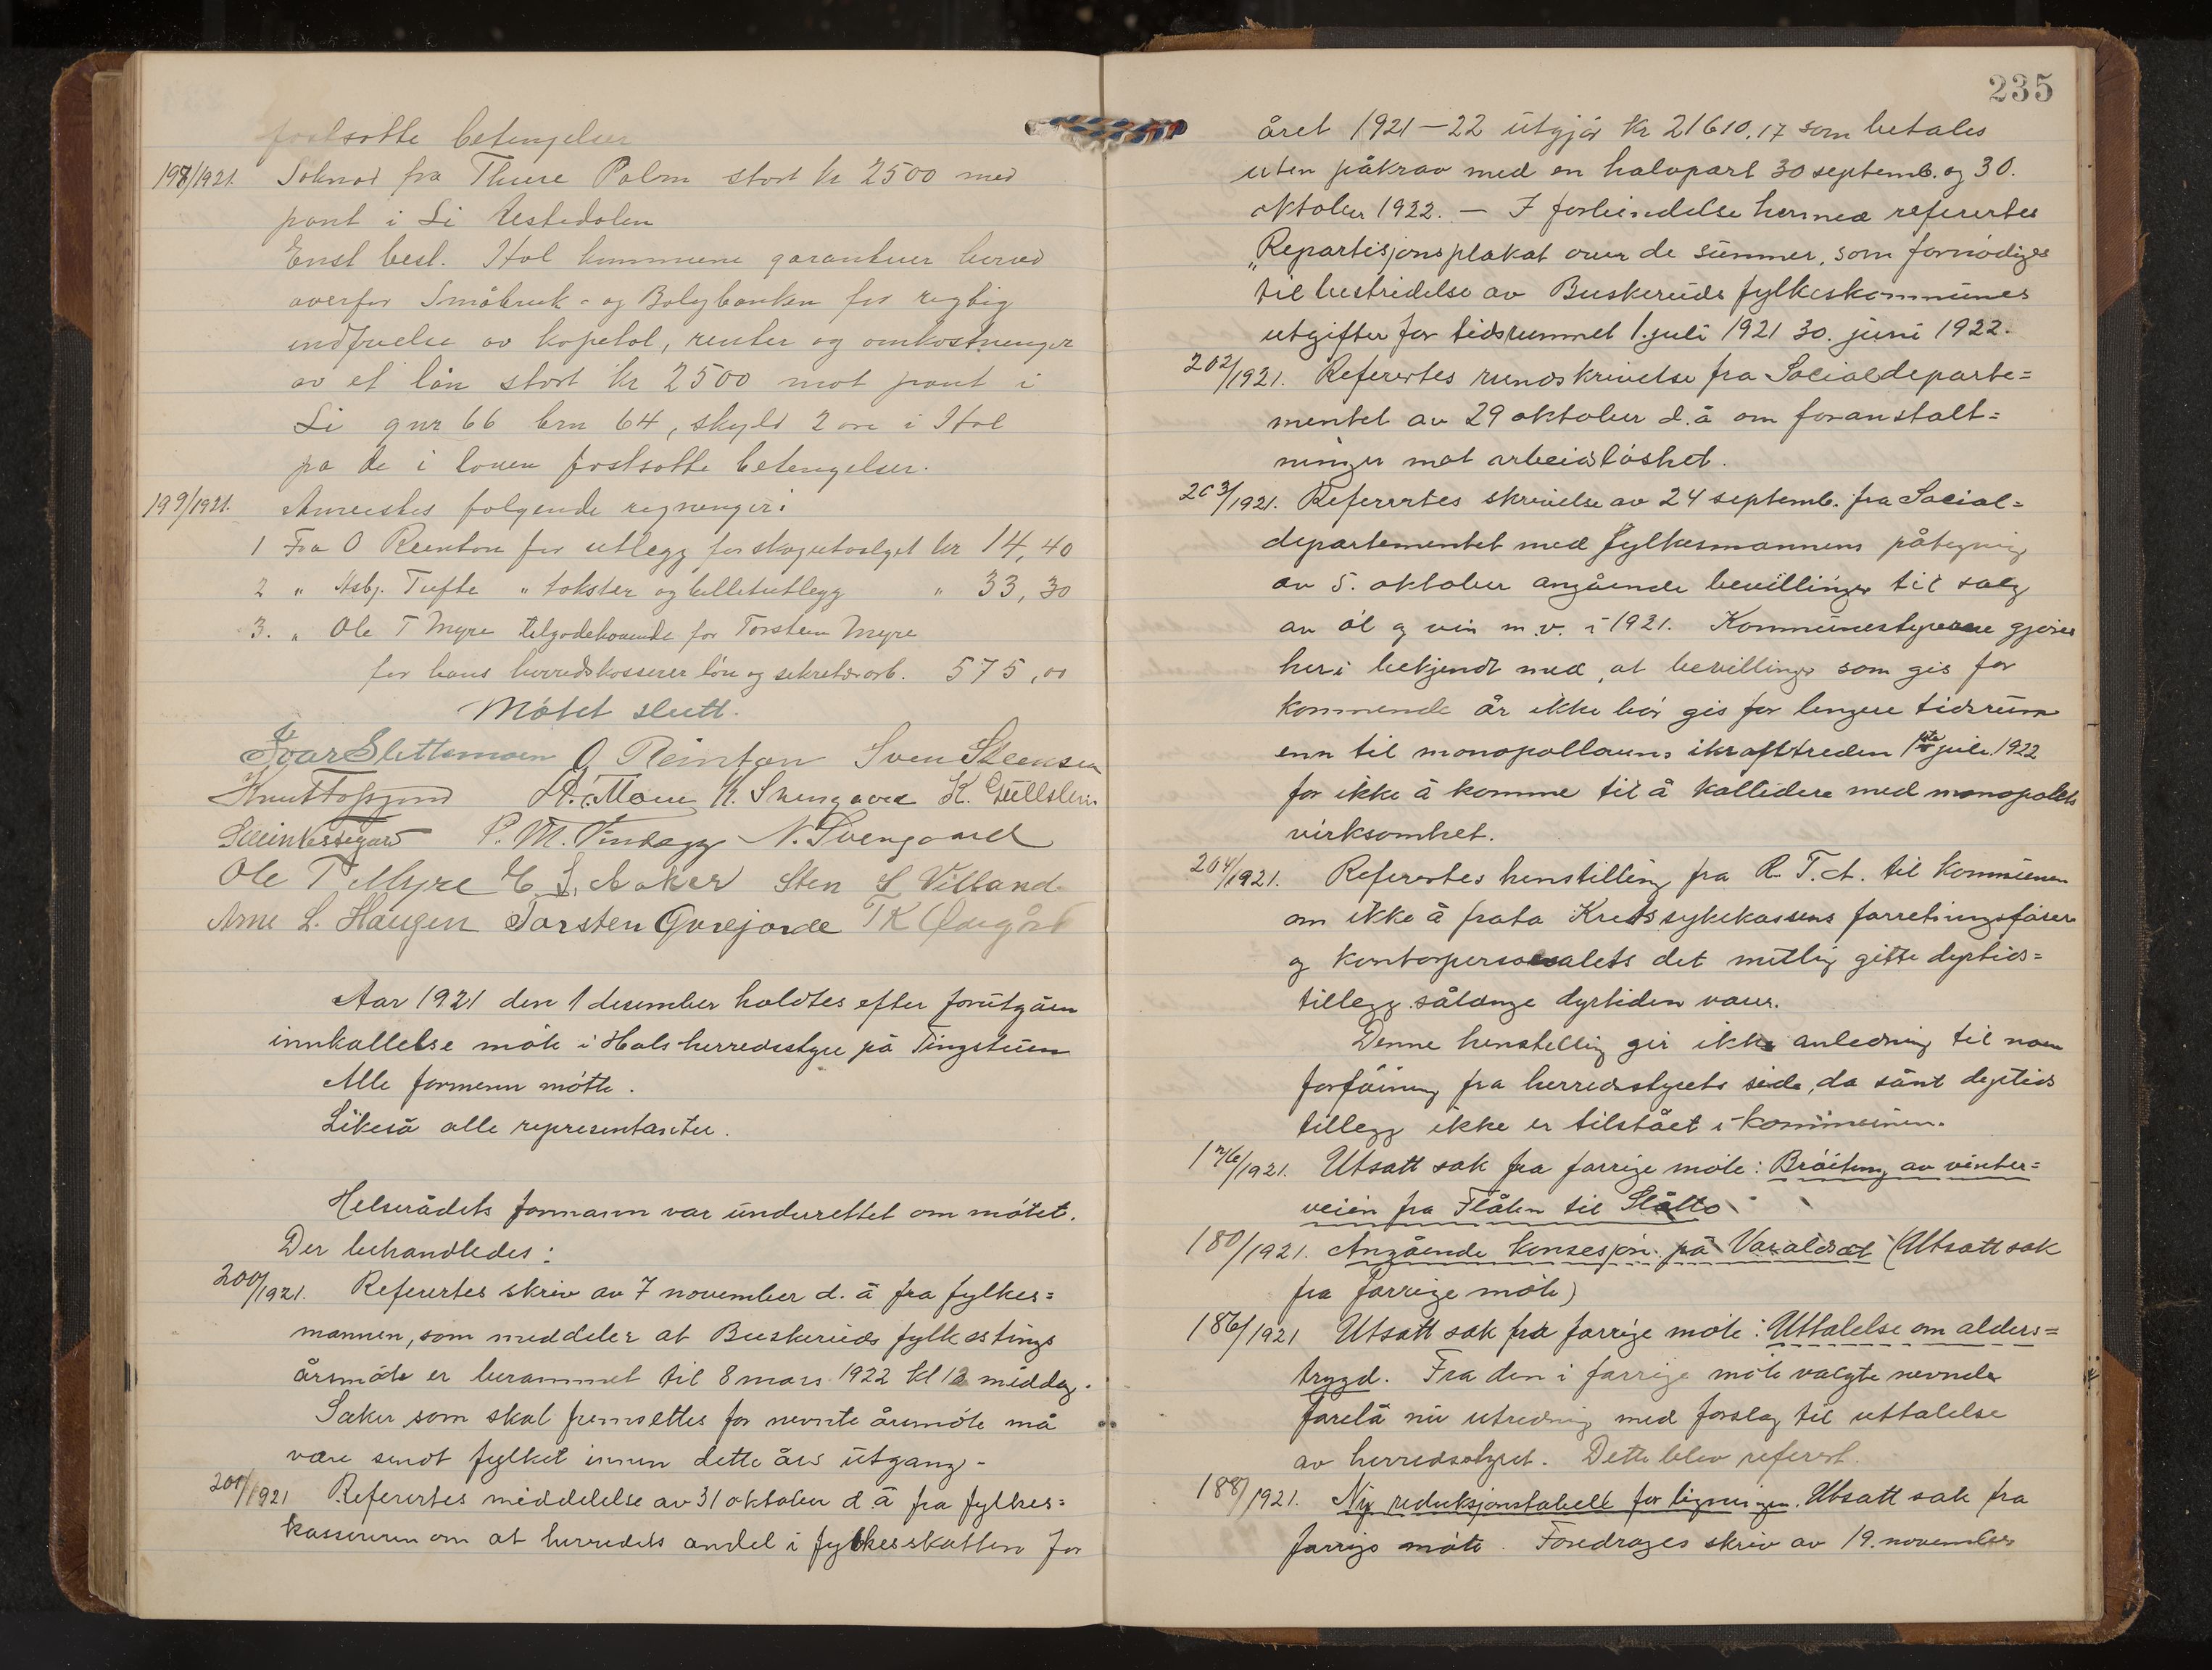 fastsatte betengelser
198/1921. Søknad fra Thure Palm stort kr 2500 med
pant i Li Uestedalen
Enst besl. Hol kommune garanterer herved
overfor Småbruk- og Boligbanken for rigtig
indfrielse av kapetal, renter og omkostnenger
av et lån stort kr 2500 mot pant i
Li gnr 66 brn 64, skyld 2 øre i Hol
på de i loven fastsatte betengelser.
199/1921. Anvistes følgende regnenger:
1 Fra O Reinton for utlegg for skogutvalget kr 14,40
2 " Asbj. Tufte " takster og billetutlegg " 33,30
3. " Ole T Myre tilgodehavende for Torstein Myre
for hans herredskasserer løn og sekretærarb. 575,00
Møtet slutt.
Ivar Slettemoen O Reinton Sven Steensen
Knut Tofsgard A. Moen K. Svengaard K. Gullstein
Svein Vestegard P. M. Tindegg N. Svengaard
Ole T Myre E. S. Aaker Sten S Villand
Arne L. Haugen Torsten Gurejorde T K Øengård
Aar 1921 den 1 desember holdtes efter forutgåen
innkallelse møte i Hols herredsstyre på Tingstuen
Alle formenn møtte.
Likeså alle representanter.
Helserådets formann var underrettet om møtet.
Der behandledes:
200/1921. Refertes skriv av 7 november d. å fra fylkes=
mannen, som meddeler at Buskeruds fylkestings
årsmøte er berammet til 8 mars 1922 kl 12 middag.
Saker som skal fremsettes for nevnte årsmøte må
være sendt fylket innen dette års utgang.
201/1921 Refertes meddelelse av 31 oktober d å fra fylkes=
kassereren om at herredets andel i fylkesskatten for
235
året 1921-22 utgjør kr 21610.17 som betales
uten påkrav med en halvpart 30 septemb. og 30.
oktober 1922. — I forbindelse hermed refertes
"Repartisjonsplakat over de summer, som fornødiges
til bestridelse av Buskeruds fylkeskommunes
utgifter for tidsrummet 1. juli 1921 30. juni 1922.
202/1921. Refertes rundskrivelse fra Socialdeparte=
mentet av 29 oktober d. å om foranstalt=
ninger mot arbeidsløshet.
203/1921. Refertes skrivelse av 24 septemb. fra Social=
departementet med fylkesmannens påtegning
av 5. oktober angående bevillinger til salg
av øl og vin m.v. i 1921. Kommunestyrene gjøres
heri bekjendt med, at bevillinger som gis for
kommende år ikke bør gis for lengere tidsrum
enn til monopollovens ikrafttreden 1ste juli 1922
for ikke å komme til å kollidere med monopolets
virksomhet.
204/1921. Refertes henstilling fra R. T. A. til kommunen
om ikke å frata Kretssykekassens forretningsfører
og kontorpersonalets det midlig gitte dyrtids=
tillegg sålenge dyrtiden varer.
Denne henstilling gir ikke anledning til noen
forføining fra herredsstyrets side, da sånt dyrtids
tillegg ikke er tilstået i kommunen.
176/1921. Utsatt sak fra forrige møte: Brøiting av vinter=
veien fra Flåten til Slåtto
180/1921. Angående konsesjon på Varaldset (Utsatt sak
fra forrige møte)
186/1921 Utsatt sak fra forrige møte: Uttalelse om alders=
trygd. Fra den i forrige møte valgte nevnde
forelå nu utredning med forslag til uttalelse
av herredsstyret. Dette blev referert.
188/1921. Ny reduksjonstabell for ligningen. Utsatt sak fra
forrige møte. Foredrages skriv av 19. november